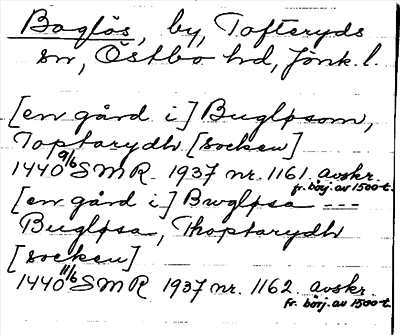 Boglös, by, Tofteryds
sn, Östbo hd, Jönk. l.
[en gård i] Bugløsom,
Toptarydh [socken]
1440 9/6 SMR 1937 nr. 1161. avskr.
fr. börj. av 1500-t.
[en gård i] Bwgløsa ---
Bugløsa, Thoptarydh
[socken]
1440 11/6 SMR 1937 nr. 1162. avskr.
fr. börj. av 1500-t.